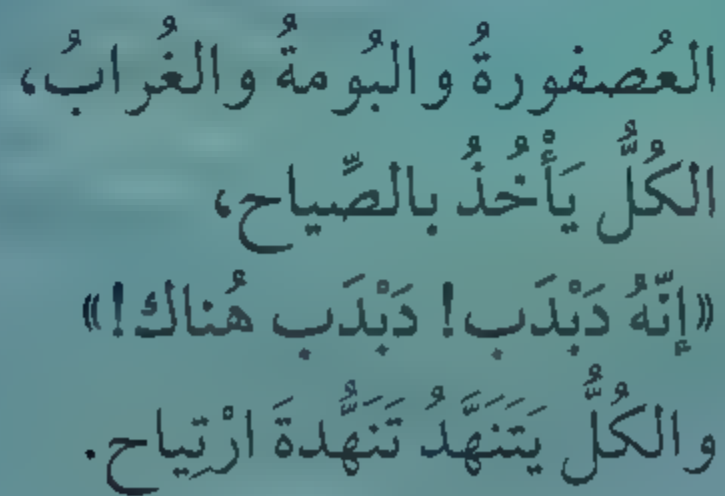 العُصفورةُ والبُومةُ والغُرابُ،
الكُلُّ يَأْخُذُ بالصِّياح،
«إنّهُ دَبْدَب! دَبْدَب هُناك!»
والكُلُّ يَتَنَهَّدُ تَنَهُّدةَ ارْتِياح.